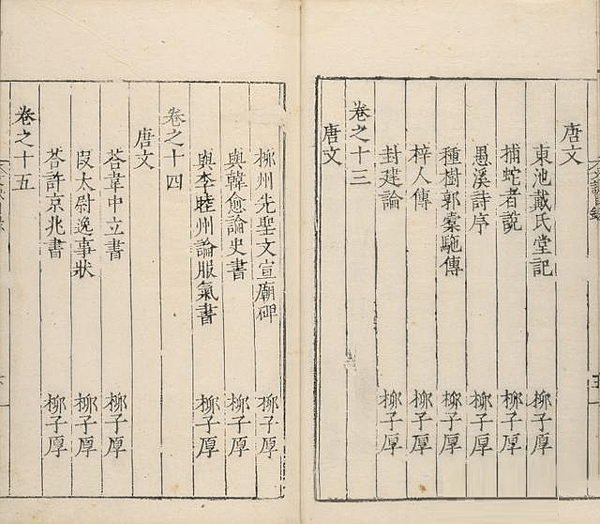 唐文
東池戴氏堂記 柳子厚
捕蛇者說 柳子厚
愚溪詩序 柳子厚
種樹郭橐駞傳 柳子厚
梓人傳 柳子厚
封建論 柳子厚
卷之十三
唐文
柳州先聖文宣廟碑 柳子厚
與韓愈論史書 柳子厚
與李睦州論服氣書 柳子厚
卷之十四
唐文
荅韋中立書 柳子厚
段太尉逸事狀 柳子厚
荅許京兆書 柳子厚
卷之十五